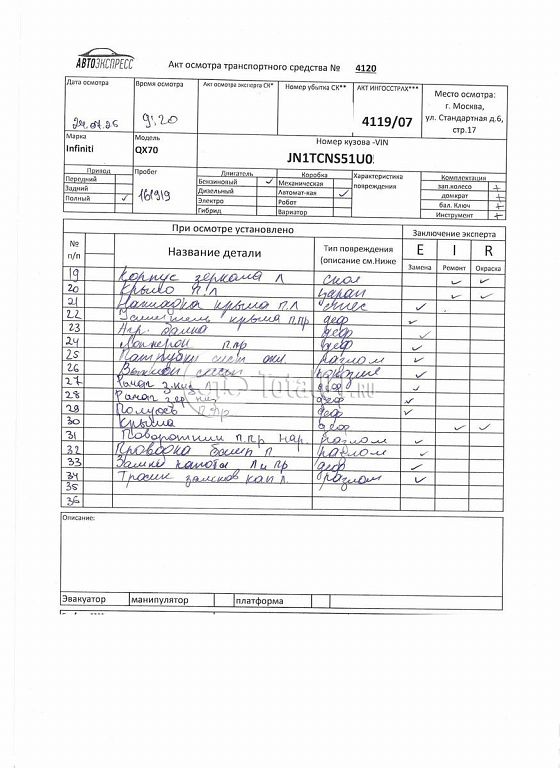 АВТОЭКСПРЕСС
Акт осмотра транспортного средства № 4120
Дата осмотра
Время осмотра
Акт осмотра эксперта СК*
Номер убытка СК**
АКТ ИНГОССТРАХ***
Место осмотра:
г. Москва,
ул. Стандартная д.6,
стр.17
9:20
4119/07
Марка
Infiniti
Модель
QX70
Номер кузова -VIN
JN1TCNS51U0
Привод
Передний
Задний
Полный ✓
Пробег
161919
Двигатель
Бензиновый ✓
Дизельный
Электро
Гибрид
Коробка
Механическая
Автомат-кая ✓
Робот
Вариатор
Характеристика
повреждения
Комплектация
зап.колесо +
домкрат +
бал. Ключ +
Инструмент +
При осмотре установлено
Заключение эксперта
№
п/п
Название детали
Тип повреждения
(описание см.Ниже
E I R
Замена Ремонт Окраска
19 Корпус зеркала Л скол ✓ ✓
20 Крыло П.Л царап ✓ ✓
21 Накладка крыла П.Л ✓
22 крыла П.Пр деф ✓
23 деф ✓
24 Лонжерон П.Пр деф ✓
25 Патрубки разлом ✓
26 ✓
27 Рычаг деф ✓
28 Рычаг деф ✓
29 П.Пр деф ✓
30 Крыша деф ✓ ✓
31 Поворотник П.Пр нар. разлом ✓
32 Проводка П разлом ✓
33 Замки капота Л и Пр деф ✓
34 Тросик замков кап Л. разлом ✓
35
36
Total
.RU
Описание:
Эвакуатор манипулятор платформа